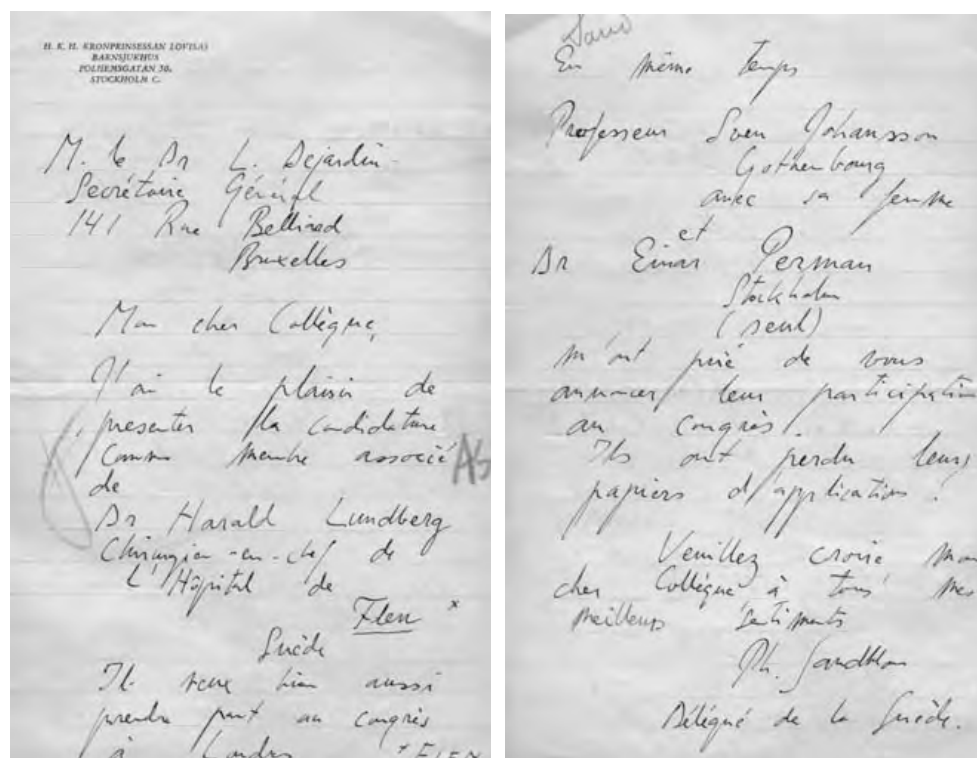 H. K. H. KRONPRINSESSAN LOVISAS
BARNSJUKHUS
POLHEMSGATAN 30.
STOCKHOLM C.
M. le Dr L. Dejardin
Secrétaire Général
141 Rue Belliard
Bruxelles
Mon cher Collègue,
J'ai le plaisir de
presenter la candidature
comme membre associé
de
Dr Harald Lundberg
Chirurgien-en-chef de
L'Hôpital de
Flen x
Suède
Il veut bien aussi
prendre part au congrès
à Londres x FLEN
En même temps
Professeur Sven Johansson
Gothenbourg
avec sa femme
et
Dr Einar Perman
Stockholm
(seul)
m'ont prié de vous
annoncer leur participation
au congrès.
Ils ont perdu leurs
papiers d'application!
Veuillez croire mon
cher Collègue à tous mes
meilleurs sentiments
Ph. Sandblom
Délégué de la Suède.